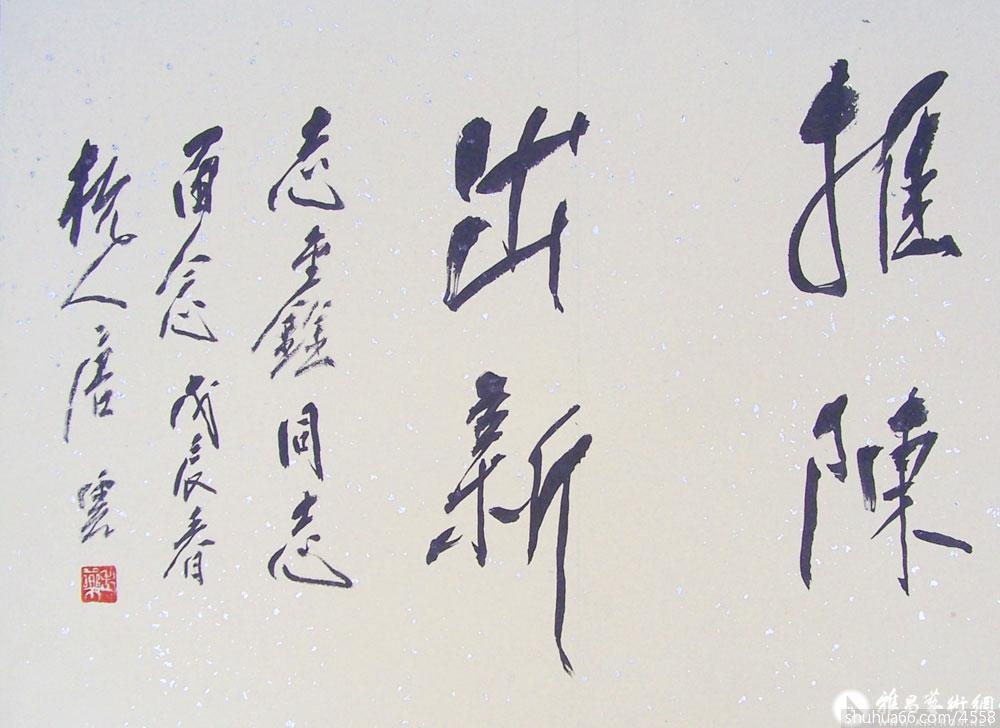 推陳
出新
志奎鎰同志
留念 戊辰春
杭人唐雲
雅昌藝術網
shuhua66.com/4558